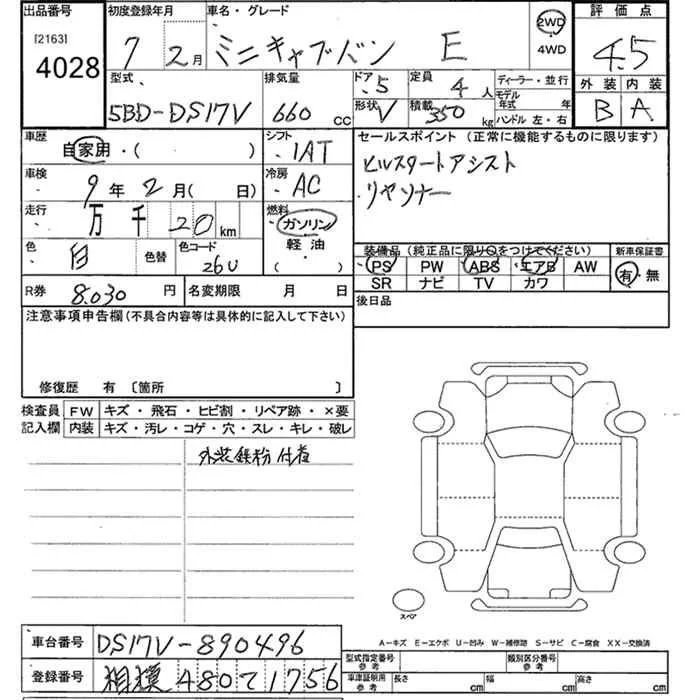 出品番号 初度登録年月 車名・グレード 評価点
[2163] 4028 7 2月 ミニキャブバン E 2WD 4WD 4.5
型式 排気量 ドア 定員 ディーラー・並行 外装 内装
5BD-DS17V 660 CC 5 4人 モデル年式 年 B A
形状 V 積載 350 kg ハンドル 左・右
車歴 自家用・( ) シフト IAT セールスポイント (正常に機能するものに限ります)
車検 9年2月( 日) 冷房 AC ヒルスタートアシスト
リヤソナー
走行 万 千 20 km 燃料 ガソリン 軽油 ( )
色 白 色替 色コード 26U
装備品 (純正品に限り○をつけてください) 新車保証書
PS PW ABS エアB AW 有・無
SR ナビ TV カワ
R券 8.030 円 名変期限 月 日 後日品
注意事項申告欄 (不具合内容等は具体的に記入して下さい)
修復歴 有 〔箇所 〕
検査員 FW キズ・飛石・ヒビ割・リペア跡・×要
記入欄 内装 キズ・汚レ・コゲ・穴・スレ・キレ・破レ
外装鉄粉付着
スペア
A−キズ E−エクボ U−凹み W−補修跡 S−サビ C−腐食 XX−交換済
車台番号 DS17V-890496
型式指定番号 参考 類別区分番号 参考
登録番号 相模 480 て 1756
車庫証明用 参考 長さ cm 幅 cm 高さ cm